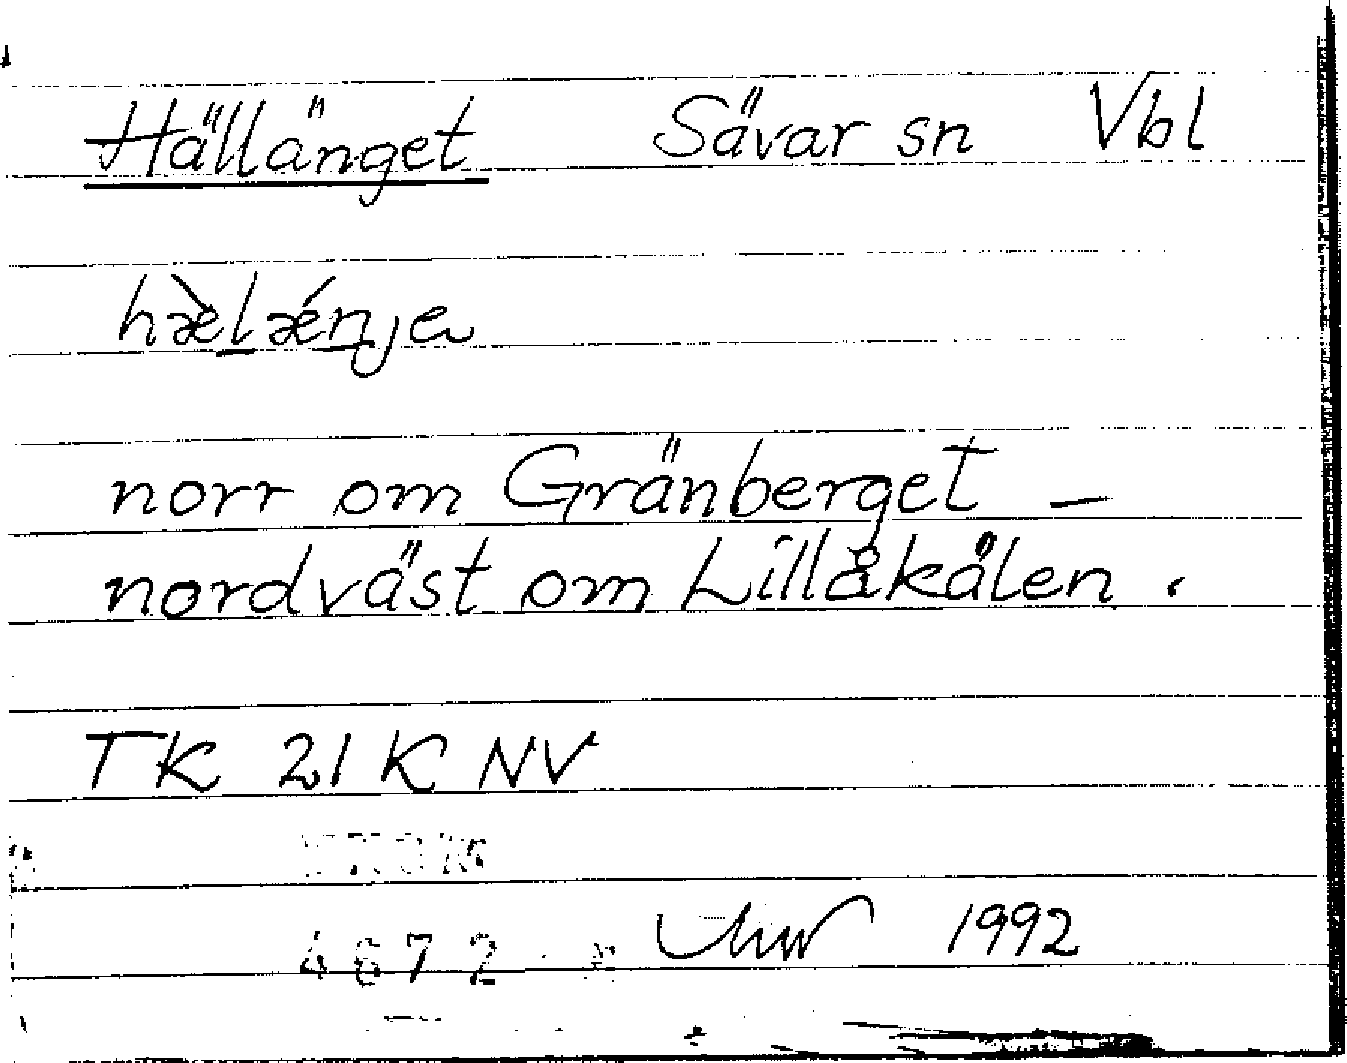 Hällänget Sävar sn Vbl
hæ̀lǽnja
norr om Gränberget –
nordväst om Lillåkålen.
TK 21 K NV
4672
1992